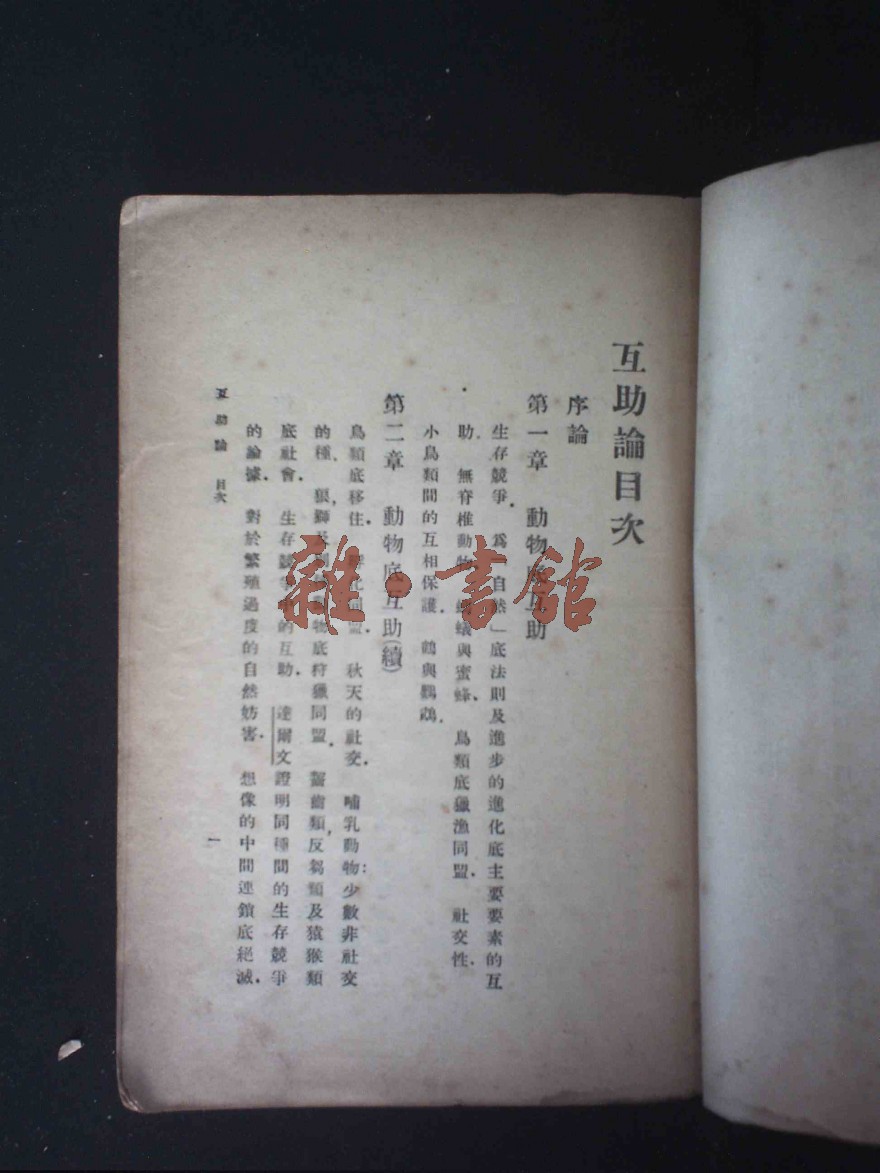 互助論目次
序論
第一章 動物底互助
生存競爭. 爲「自然」底法則及進步的進化底主要要素的互
助. 無脊椎動物. 螞蟻與蜜蜂. 鳥類底獵漁同盟. 社交性.
小鳥類間的互相保護. 鶴與鸚鵡.
第二章 動物底互助(續)
鳥類底移住. 同盟. 秋天的社交. 哺乳動物:少數非社交
的種. 狼,獅及 物底狩獵同盟. 齧齒類,反芻類及猿猴類
底社會. 生存競爭 的互助. 達爾文證明同種間的生存競爭
的論據. 對於繁殖過度的自然妨害. 想像的中間連鎖底絕滅.
互助論 目次
一
雜·書館